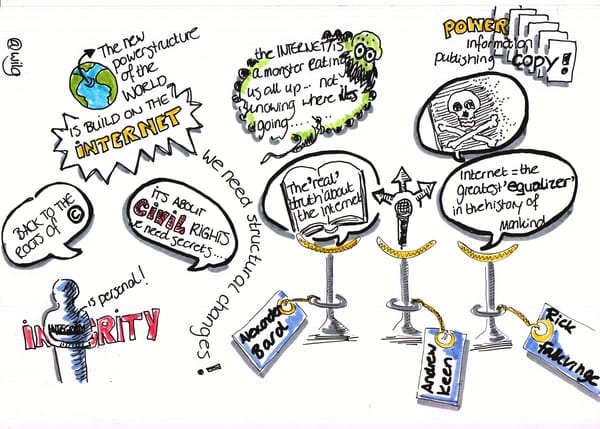 @wilg
The new
powerstructure
of the
WORLD
IS BUILD ON THE
INTERNET
the INTERNET IS
a monster eating
us all up... not
knowing where its
going....
POWER
information
publishing COPY!
BACK TO THE
ROOTS OF ©
ITS ABOUT
CIVIL RIGHTS
we need secrets...
we need structural changes!
The 'real'
truth about
the internet
Internet = the
greatest 'equalizer'
in the history of
Mankind
is personal!
INTEGRITY
INTEGRITY
Alexander
Bard
Andrew
Keen
Rick
Falkvinge